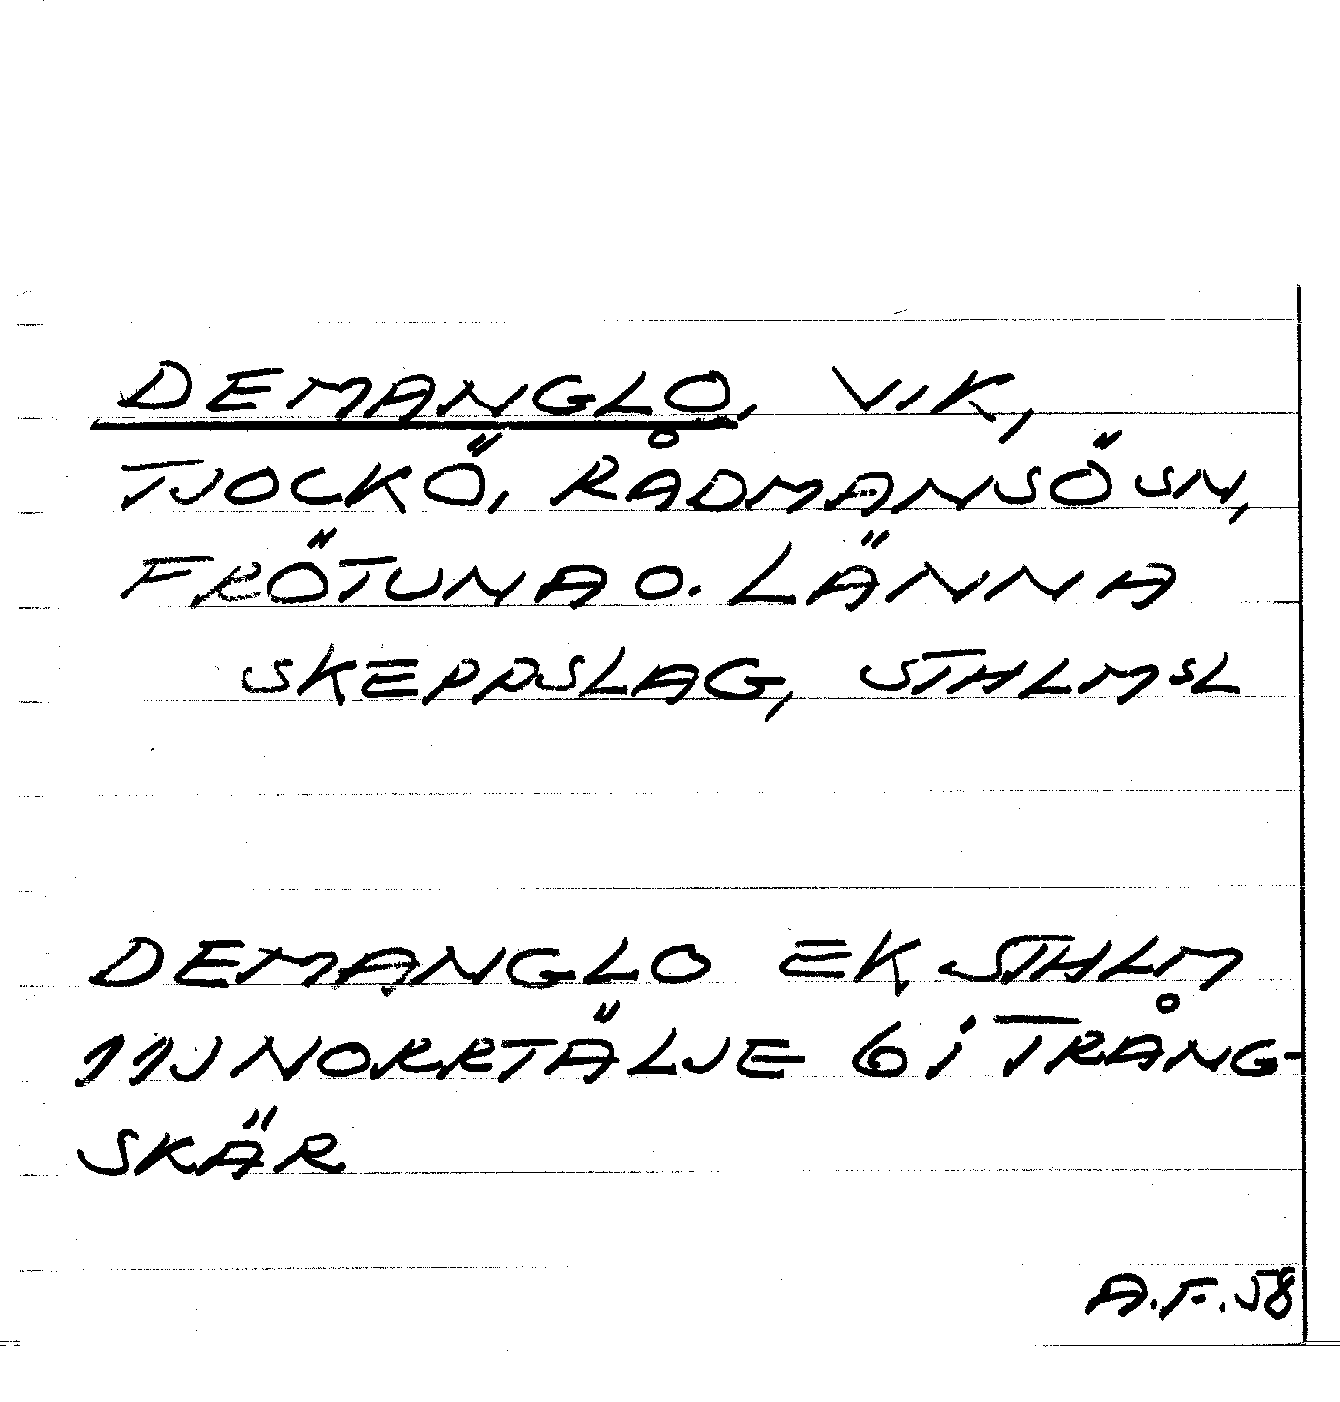 DEMANGLO, VIK,
TJOCKÖ, RÅDMANSÖ SN,
FRÖTUNA O. LÄNNA
SKEPPSLAG, STHLMS L
DEMANGLO EK STHLM
11J NORRTÄLJE 6 i TRÅNG-
SKÄR
A.F. 58